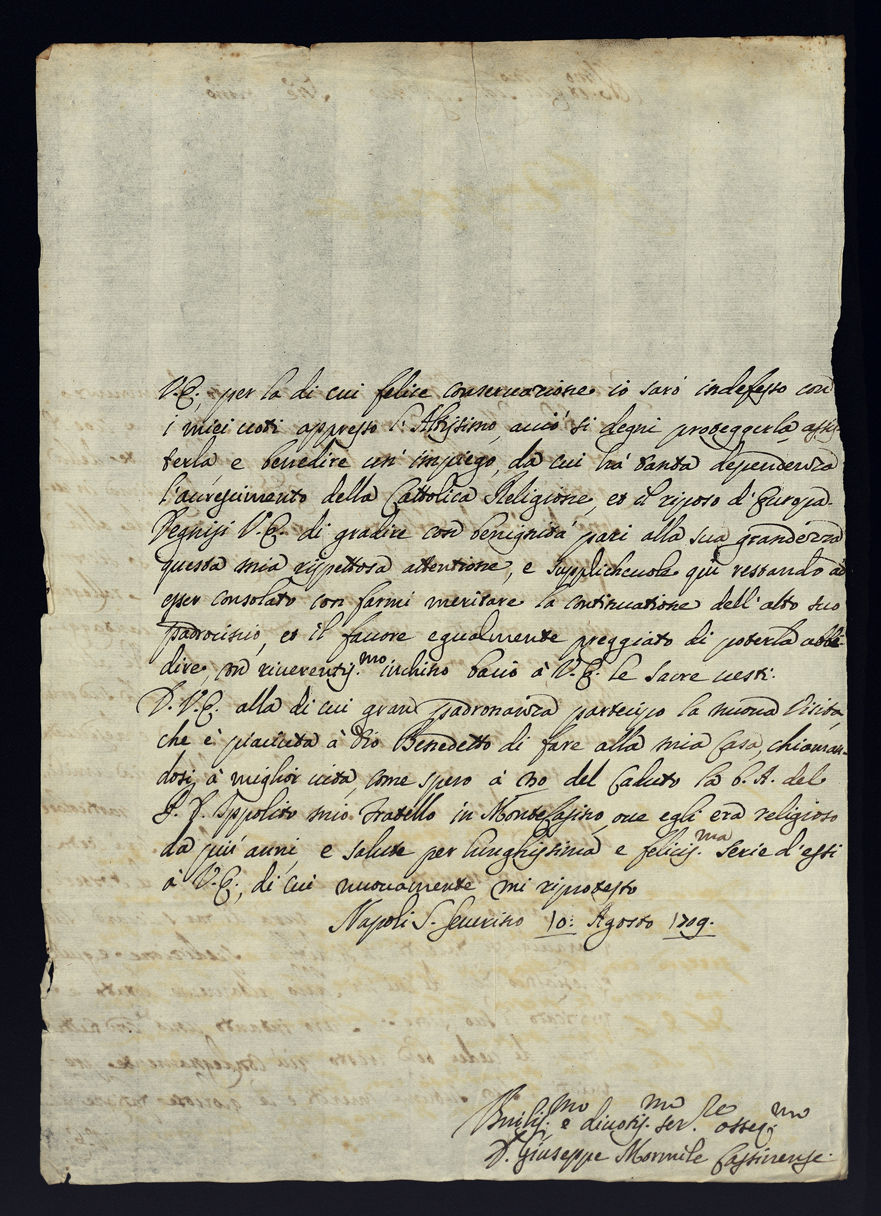 V.E., per la di cui felice conseruazione io sarò indefesso con
i miei uoti appresso l'Altissimo, acciò si degni proteggerla, assis-
terla e benedire un' impiego, da cui hà tanta dependenza
l'accrescimento della Cattolica Religione, et il riposo d'Europa.
Degnisi V.E. di gradire con benignità pari alla sua grandezza
questa mia rispettosa attentione, e supplicheuole quì restando ad
esser consolato con farmi meritare la continuatione dell'alto suo
padrocinio, et il fauore egualmente preggiato di poterla ubbi-
dire, con riuerentis.mo inchino bacio à V.E. le sacre uesti.
D. V.E. alla di cui gran padronanza partecipo la nuoua Visita,
che è piaciuta à Dio Benedetto di fare alla mia Casa, chiaman-
dosi à miglior uita, come spero à no del Caduto la b. A. del
P. D. Ippolito mio fratello in Montecasino, oue egli era religioso
da più anni, e salute per lunghissima e felicis.ma serie d'essi
à V.E., di cui nuouamente mi riprotesto
Napoli S. Seuerino 10: Agosto 1709.
Humilis.mo e diuotis.mo ser.re osseq.mo
D. Giuseppe Mormile Cassinense